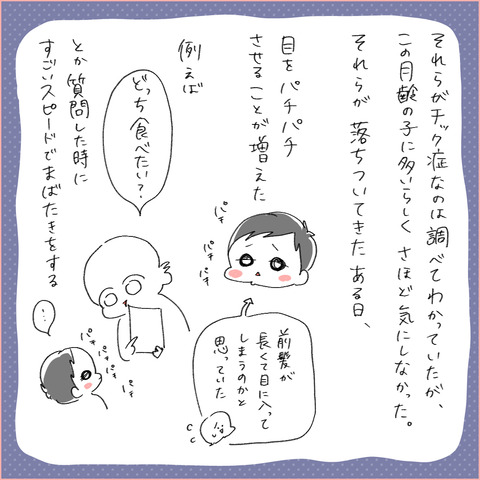 それらがチック症なのは調べてわかっていたが、
この月齢の子に多いらしく さほど気にしなかった。
それらが 落ちついてきた ある日、
目を パチパチ
させる ことが 増えた
例えば
どっち 食べたい?
とか 質問した時に
すごいスピードでまばたきをする
パチ
パチ
パチ
前髪が
長くて目に入って
しまうのかと
思っていた
…
パチ
パチ
パチ
パチ